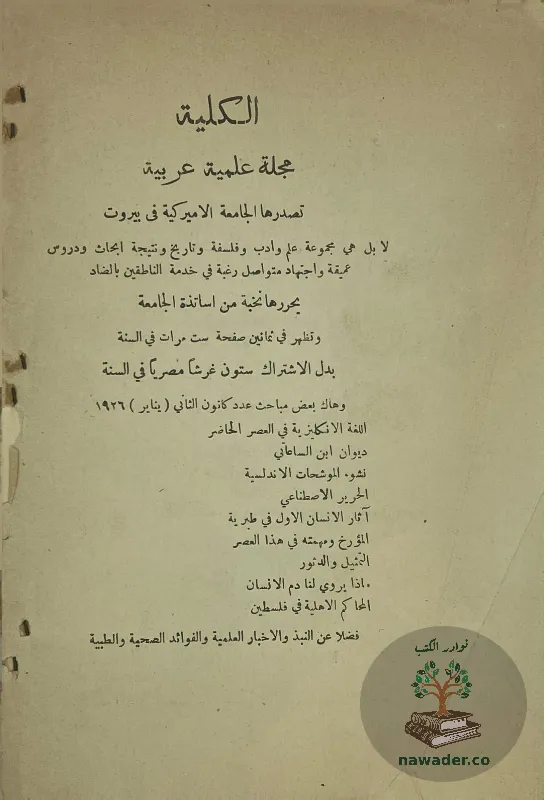 الكلية
مجلة علمية عربية
تصدرها الجامعة الاميركية في بيروت
لا بل هي مجموعة علم وادب وفلسفة وتاريخ ونتيجة ابحاث ودروس
عميقة واجتهاد متواصل رغبة في خدمة الناطقين بالضاد
يحررها نخبة من اساتذة الجامعة
وتظهر في ثمانين صفحة ست مرات في السنة
بدل الاشتراك ستون غرشاً مصرياً في السنة
وهاك بعض مباحث عدد كانون الثاني ( يناير ) ١٩٢٦
اللغة الانكليزية في العصر الحاضر
ديوان ابن الساعاتي
نشوء الموشحات الاندلسية
الحرير الاصطناعي
آثار الانسان الاول في طبرية
المؤرخ ومهمته في هذا العصر
التمثيل والدثور
ماذا يروي لنا دم الانسان
المحاكم الاهلية في فلسطين
فضلا عن النبذ والاخبار العلمية والفوائد الصحية والطبية
نوادر الكتب
nawader.co